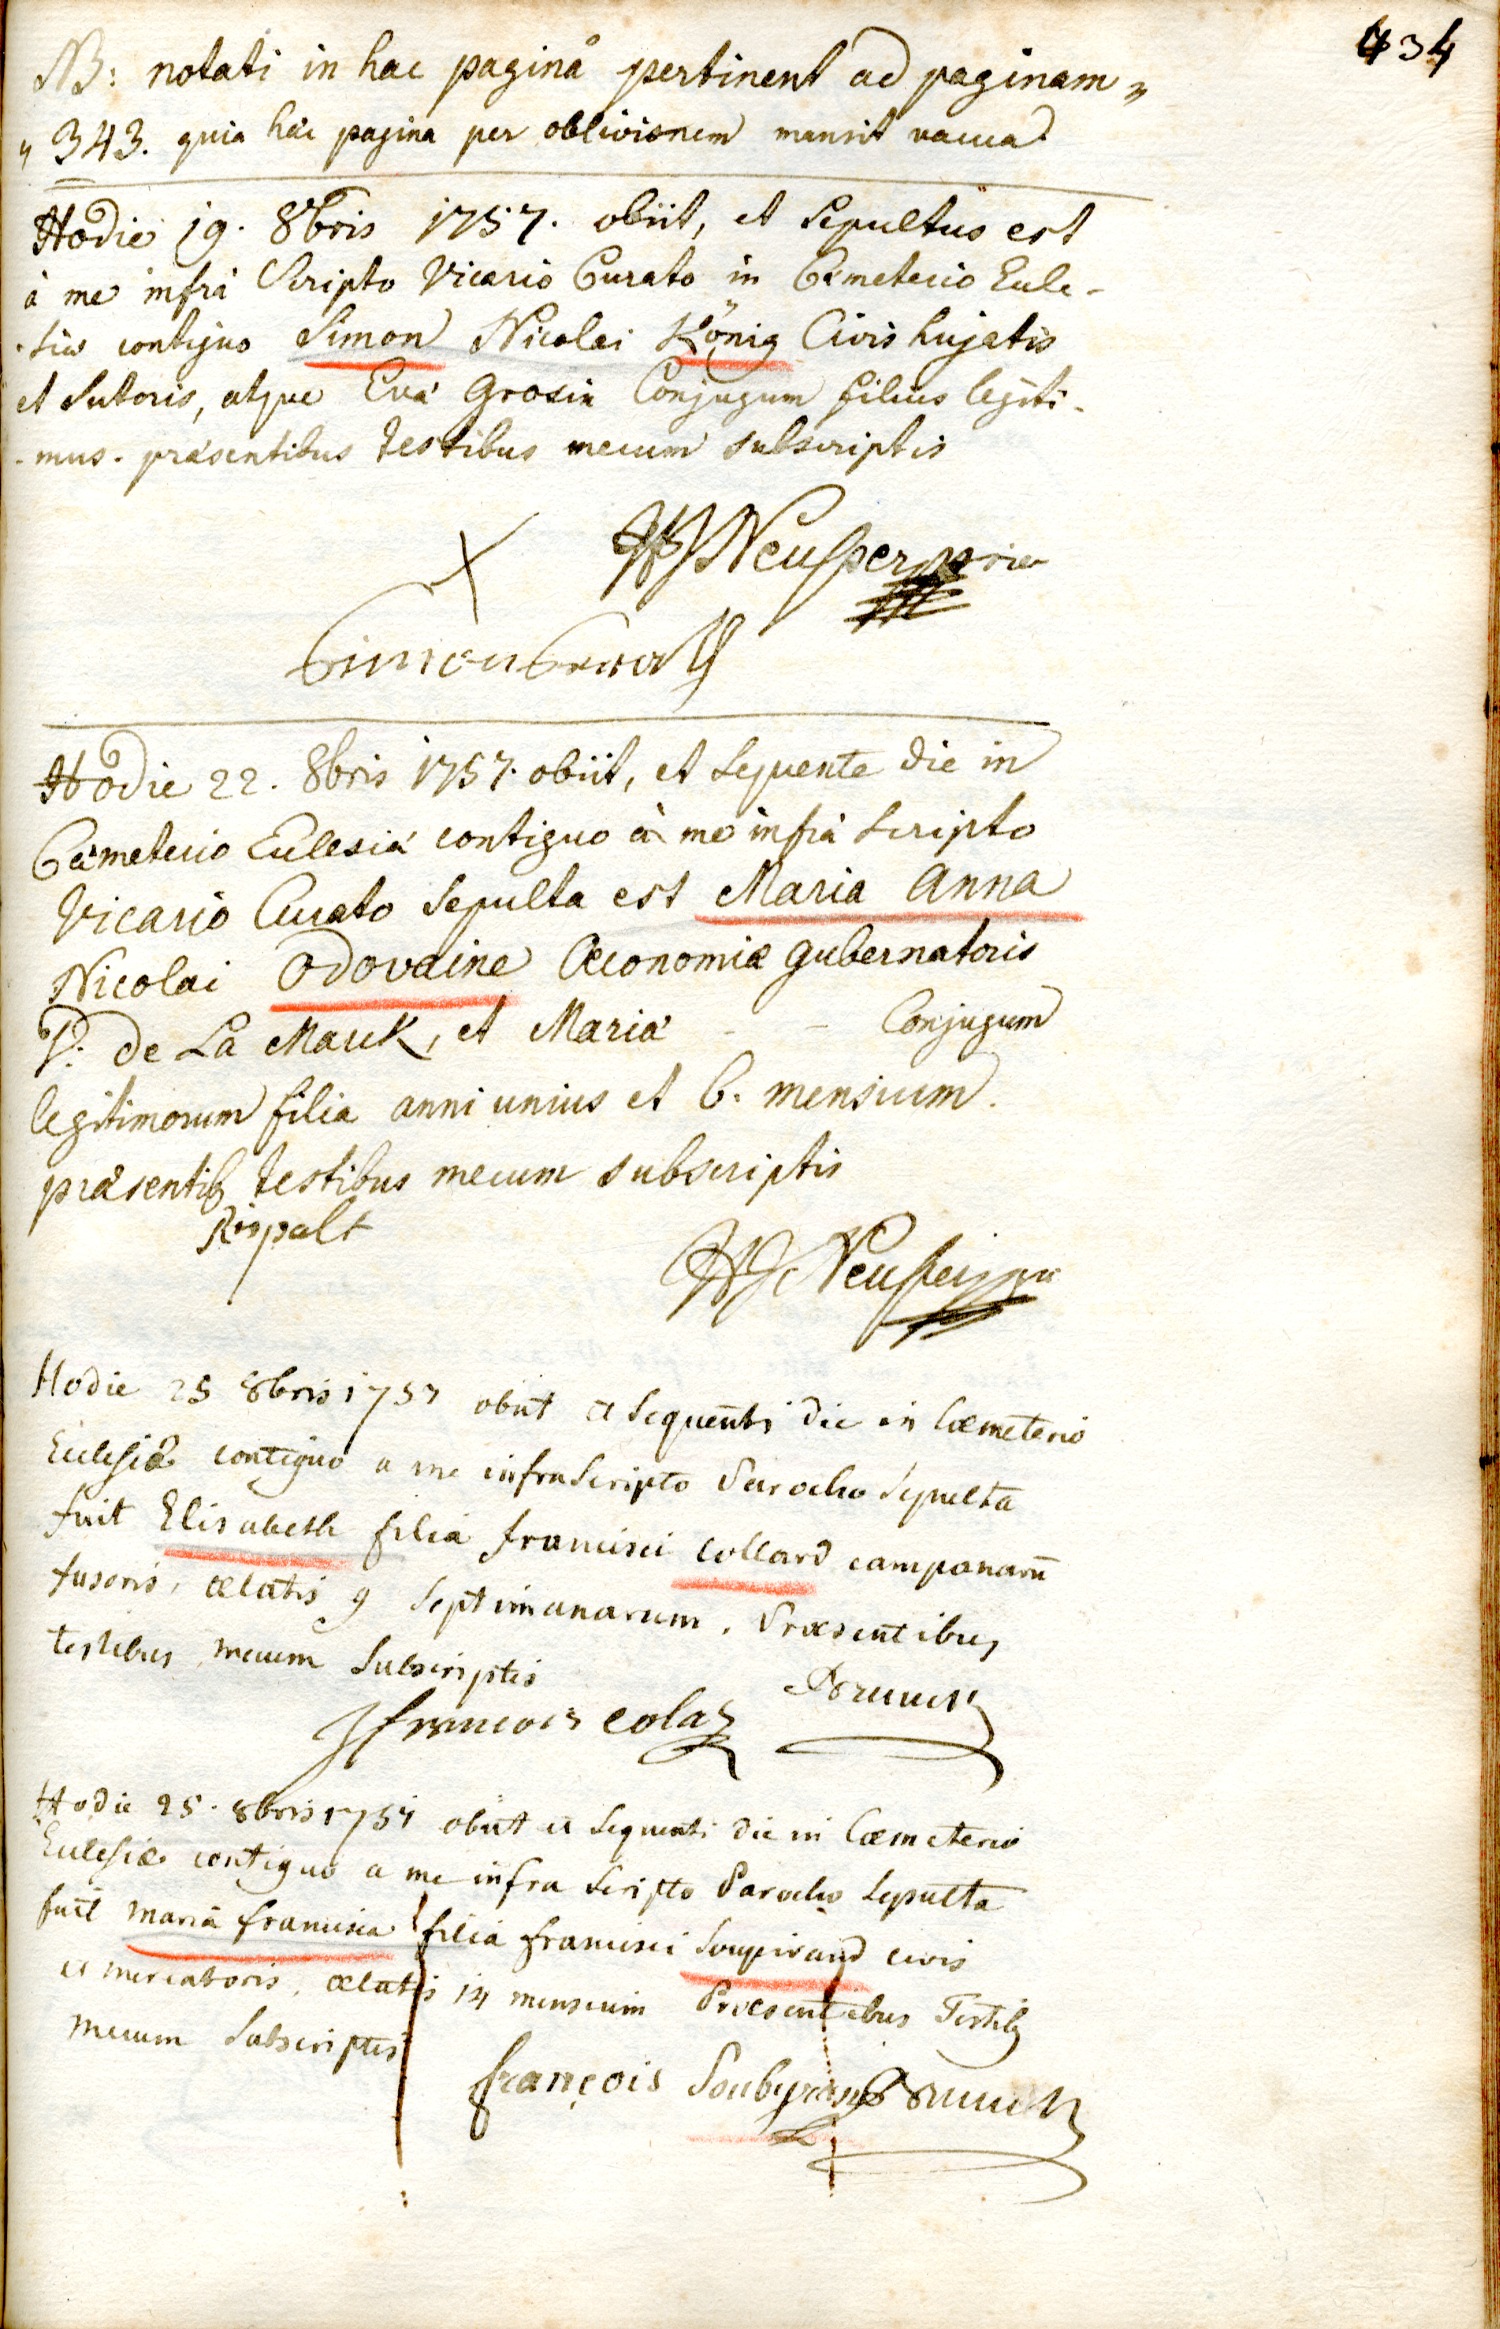 434
NB: notati in hac paginâ pertinent ad paginam „
„ 343. quia hæc pagina per oblivionem mansit vacua
Hodie 19. 8bris 1757. obiit, et Sepultus est
à me infrà Scripto Vicario Curato in Cæmeterio Eccle-
-siæ contiguo Simon Nicolai König Civis hujatis
et Sutoris, atque Evæ Grosin Conjugum filius legiti-
-mus. præsentibus testibus mecum subscriptis
X
Hodie 22. 8bris 1757. obiit, et Sequente die in
Cæmeterio Ecclesiæ contiguo à me infrà Scripto
Vicario Curato Sepulta est Maria Anna
Nicolai Odovaine Œconomiæ gubernatoris
D: de La Marck, et Mariæ - - Conjugum
legitimorum filia anni unius et 6. mensium.
præsentib testibus mecum subscriptis
Rispalt
Hodie 25 8bris 1757 obiit et Sequenti die in Cœmeterio
Ecclesiæ contiguo a me infraScripto Parocho Sepulta
fuit Elisabeth filia francisci Collard campanarū
fusoris, ætatis 9 Septimanarum. Præsentibus
testibus mecum Subscriptis
françois colas
Hodie 25. 8bris 1757 obiit et Sequenti die in Cœmeterio
Ecclesiæ contiguo a me infra Scripto Parocho Sepulta
fuit maria francisca filia francisci Soupirand civis
et mercatoris, ætatis 14 mensium Præsentibus Testib
mecum Subscriptis
françois